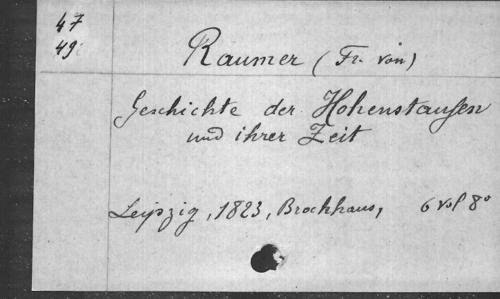 47
49
Raumer (Fr. von)
Geschichte der Hohenstaufen
und ihrer Zeit
Leipzig, 1823, Brockhaus, 6 vol 8°